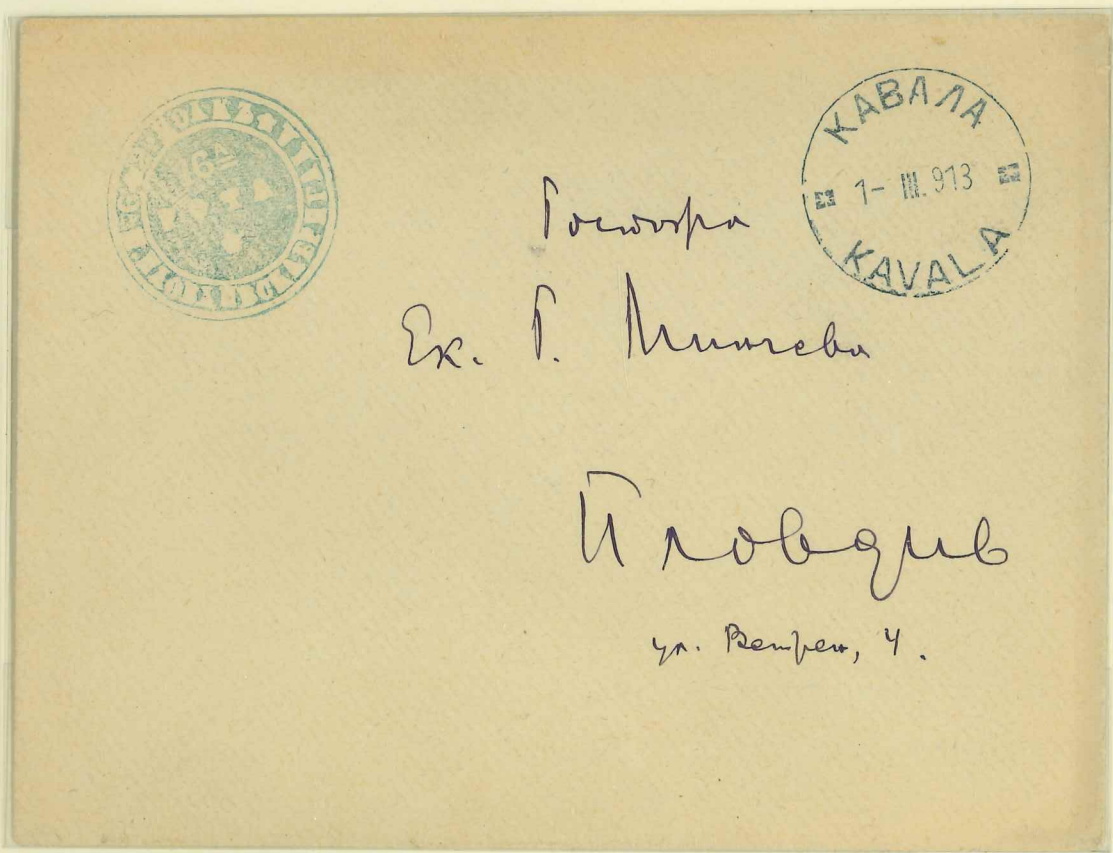 КАВАЛА
1- III. 913
KAVALA
Госпожа
Ек. Г. Минчева
Пловдив
ул. Ветрен, 4.